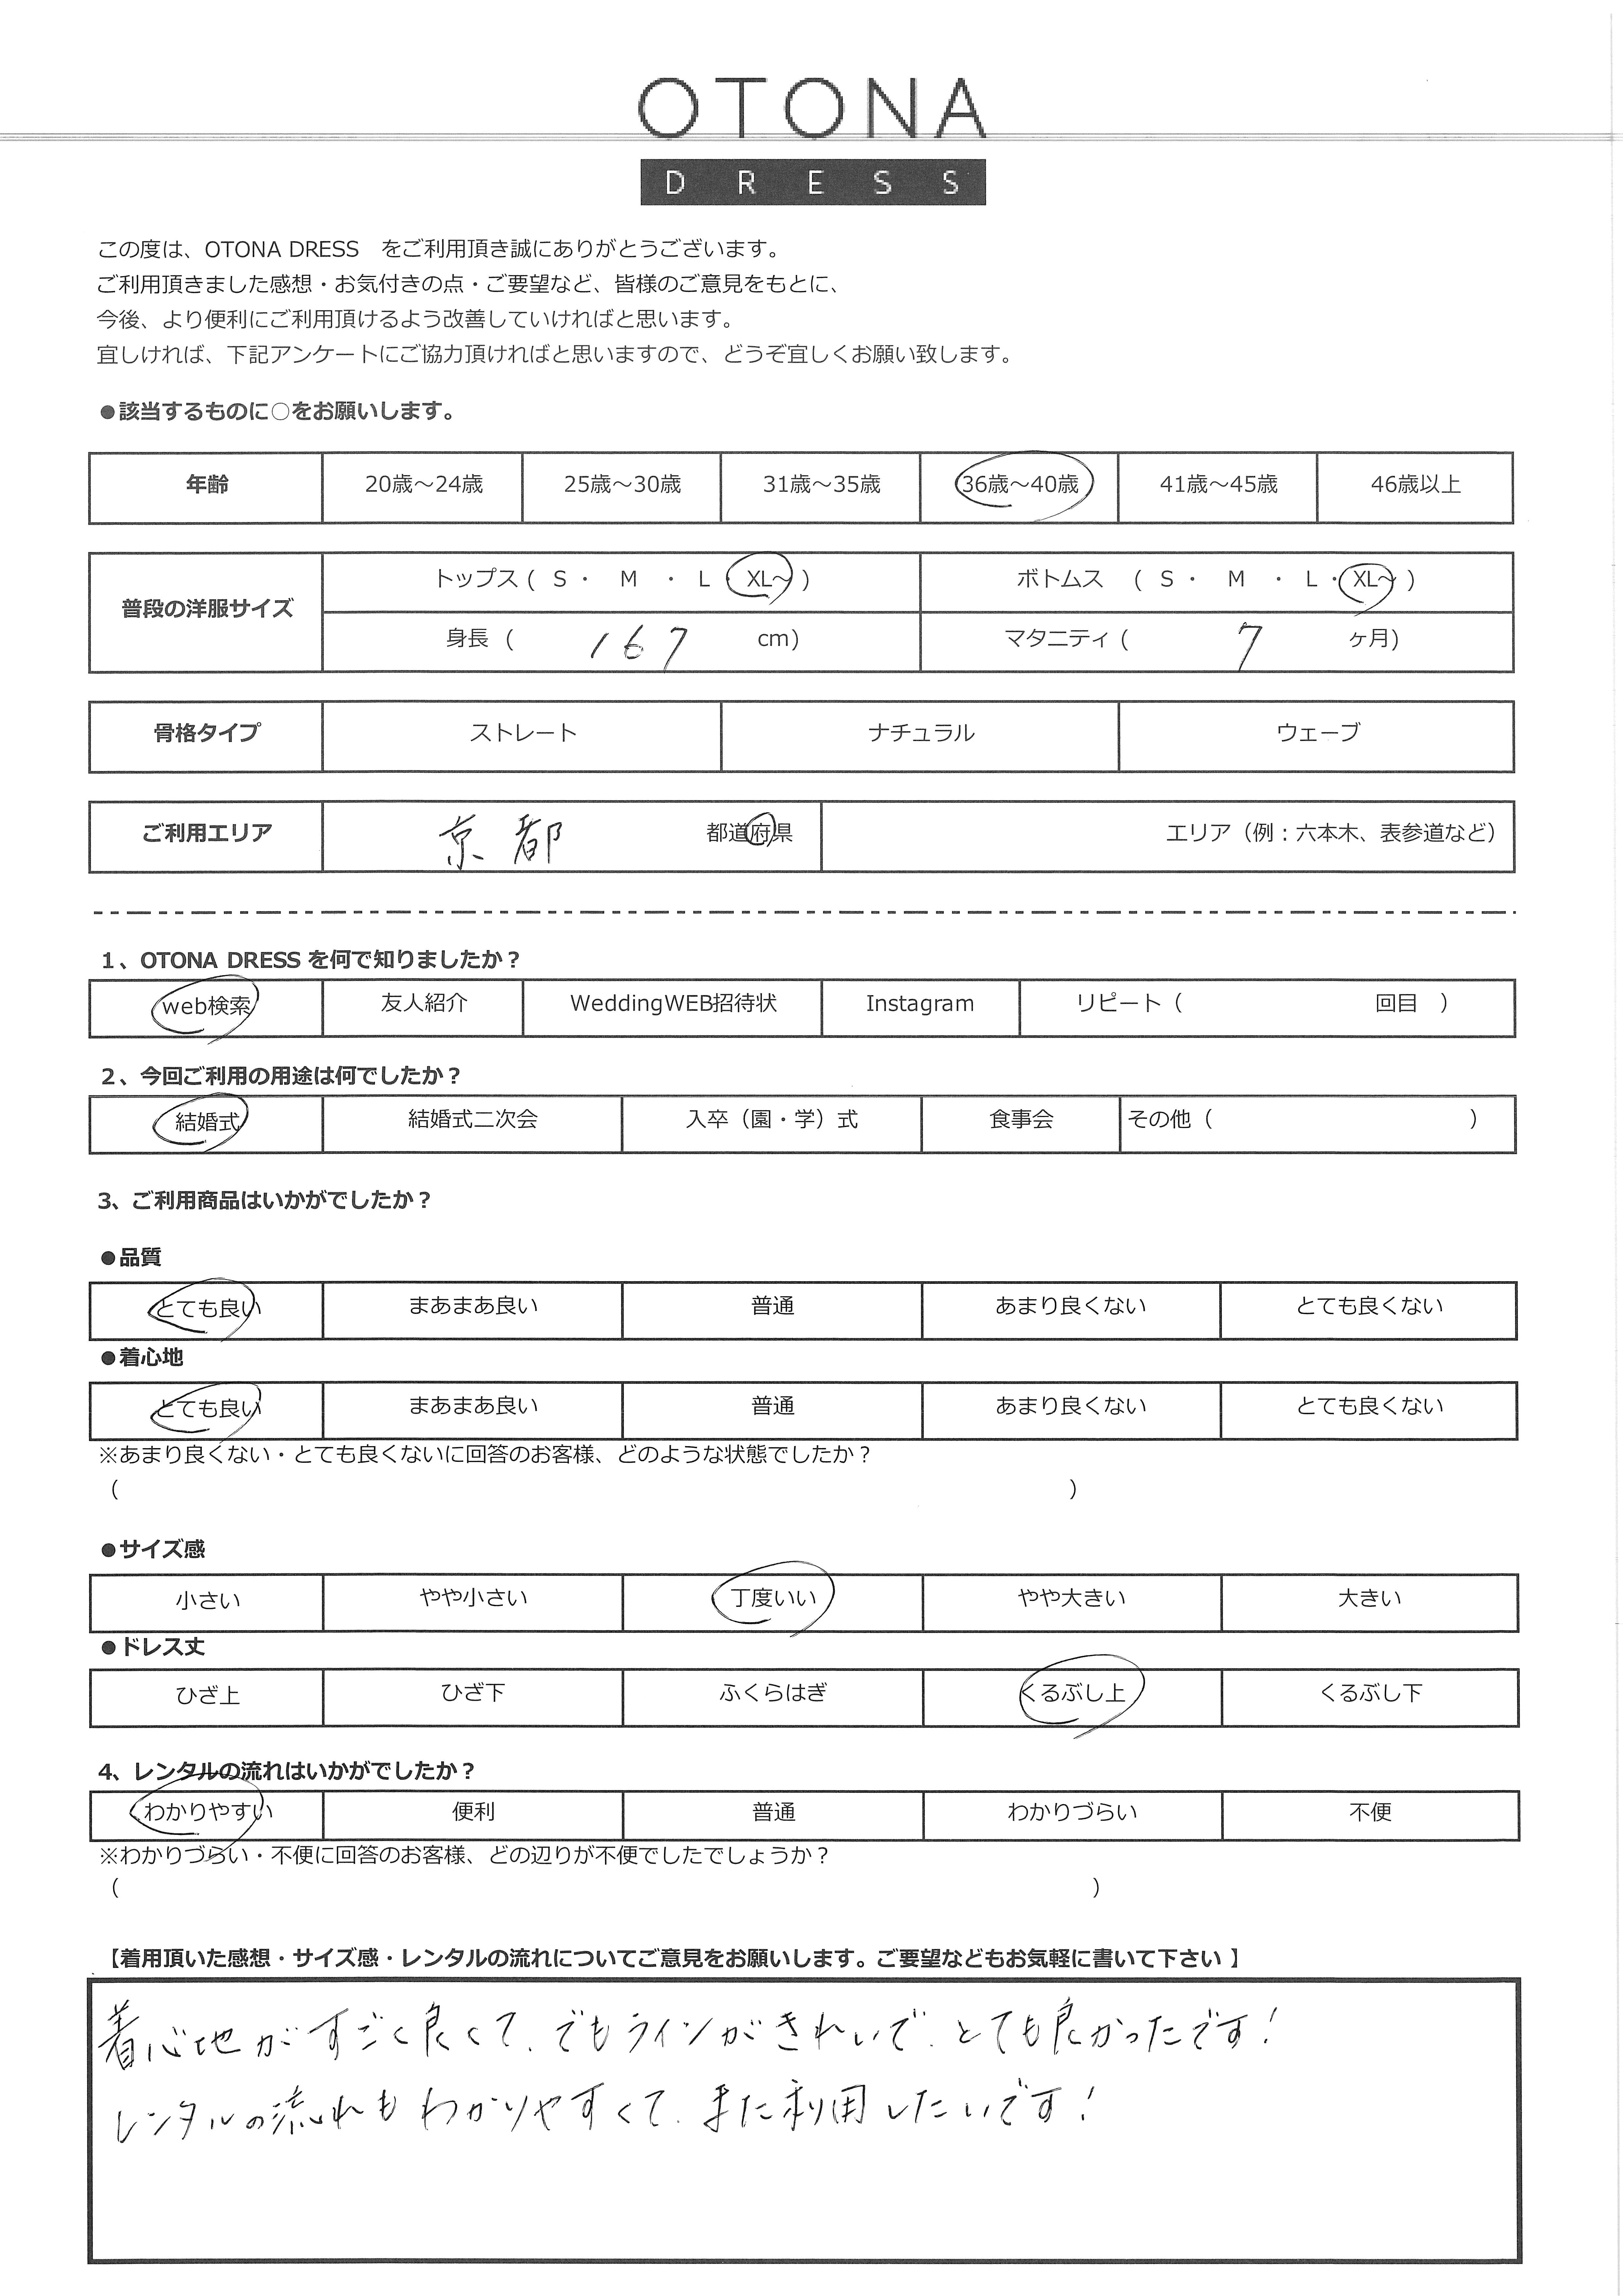 OTONA
DRESS
この度は、OTONA DRESS　をご利用頂き誠にありがとうございます。
ご利用頂きました感想・お気付きの点・ご要望など、皆様のご意見をもとに、
今後、より便利にご利用頂けるよう改善していければと思います。
宜しければ、下記アンケートにご協力頂ければと思いますので、どうぞ宜しくお願い致します。
●該当するものに○をお願いします。
年齢 20歳～24歳 25歳～30歳 31歳～35歳 36歳～40歳 41歳～45歳 46歳以上
普段の洋服サイズ
トップス ( S ・ M ・ L ・ XL～ ) ボトムス ( S ・ M ・ L ・ XL～ )
身長 ( 167 cm) マタニティ ( 7 ヶ月)
骨格タイプ ストレート ナチュラル ウェーブ
ご利用エリア 京都 都道府県 エリア（例：六本木、表参道など）
1、OTONA DRESS を何で知りましたか？
web検索 友人紹介 WeddingWEB招待状 Instagram リピート（ 回目 ）
2、今回ご利用の用途は何でしたか？
結婚式 結婚式二次会 入卒（園・学）式 食事会 その他（ ）
3、ご利用商品はいかがでしたか？
●品質
とても良い まあまあ良い 普通 あまり良くない とても良くない
●着心地
とても良い まあまあ良い 普通 あまり良くない とても良くない
※あまり良くない・とても良くないに回答のお客様、どのような状態でしたか？
（ ）
●サイズ感
小さい やや小さい 丁度いい やや大きい 大きい
●ドレス丈
ひざ上 ひざ下 ふくらはぎ くるぶし上 くるぶし下
4、レンタルの流れはいかがでしたか？
わかりやすい 便利 普通 わかりづらい 不便
※わかりづらい・不便に回答のお客様、どの辺りが不便でしたでしょうか？
（ ）
【着用頂いた感想・サイズ感・レンタルの流れについてご意見をお願いします。ご要望などもお気軽に書いて下さい 】
着心地がすごく良くて、でもラインがきれいで、とても良かったです！
レンタルの流れもわかりやすくて、また利用したいです！